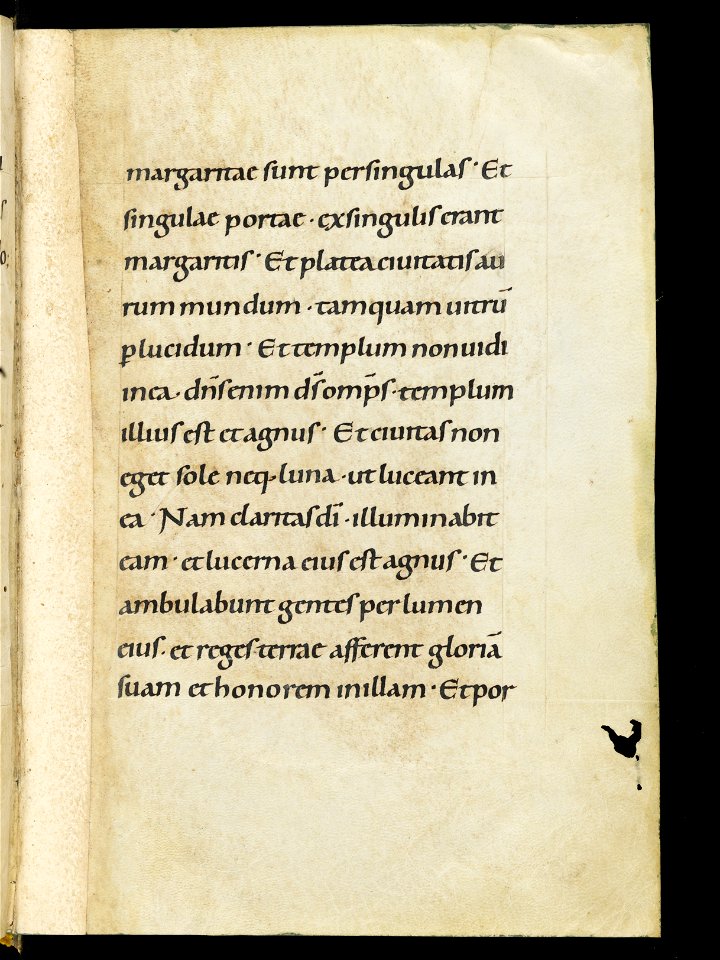 margaritae sunt persingulas · Et
singulae portae · exsingulis erant
margaritis · Et platea ciuitatis au
rum mundum · tamquam uitrū
ꝑlucidum · Et templum non uidi
in ea · dn̄s enim ds̄ omp̄s · templum
illius est et agnus · Et ciuitas non
eget sole neq· luna · ut luceant in
ea · Nam claritas dī · illuminabit
eam · et lucerna eius est agnus · Et
ambulabunt gentes per lumen
eius · et reges terrae afferent gloriā
suam et honorem in illam · Et por